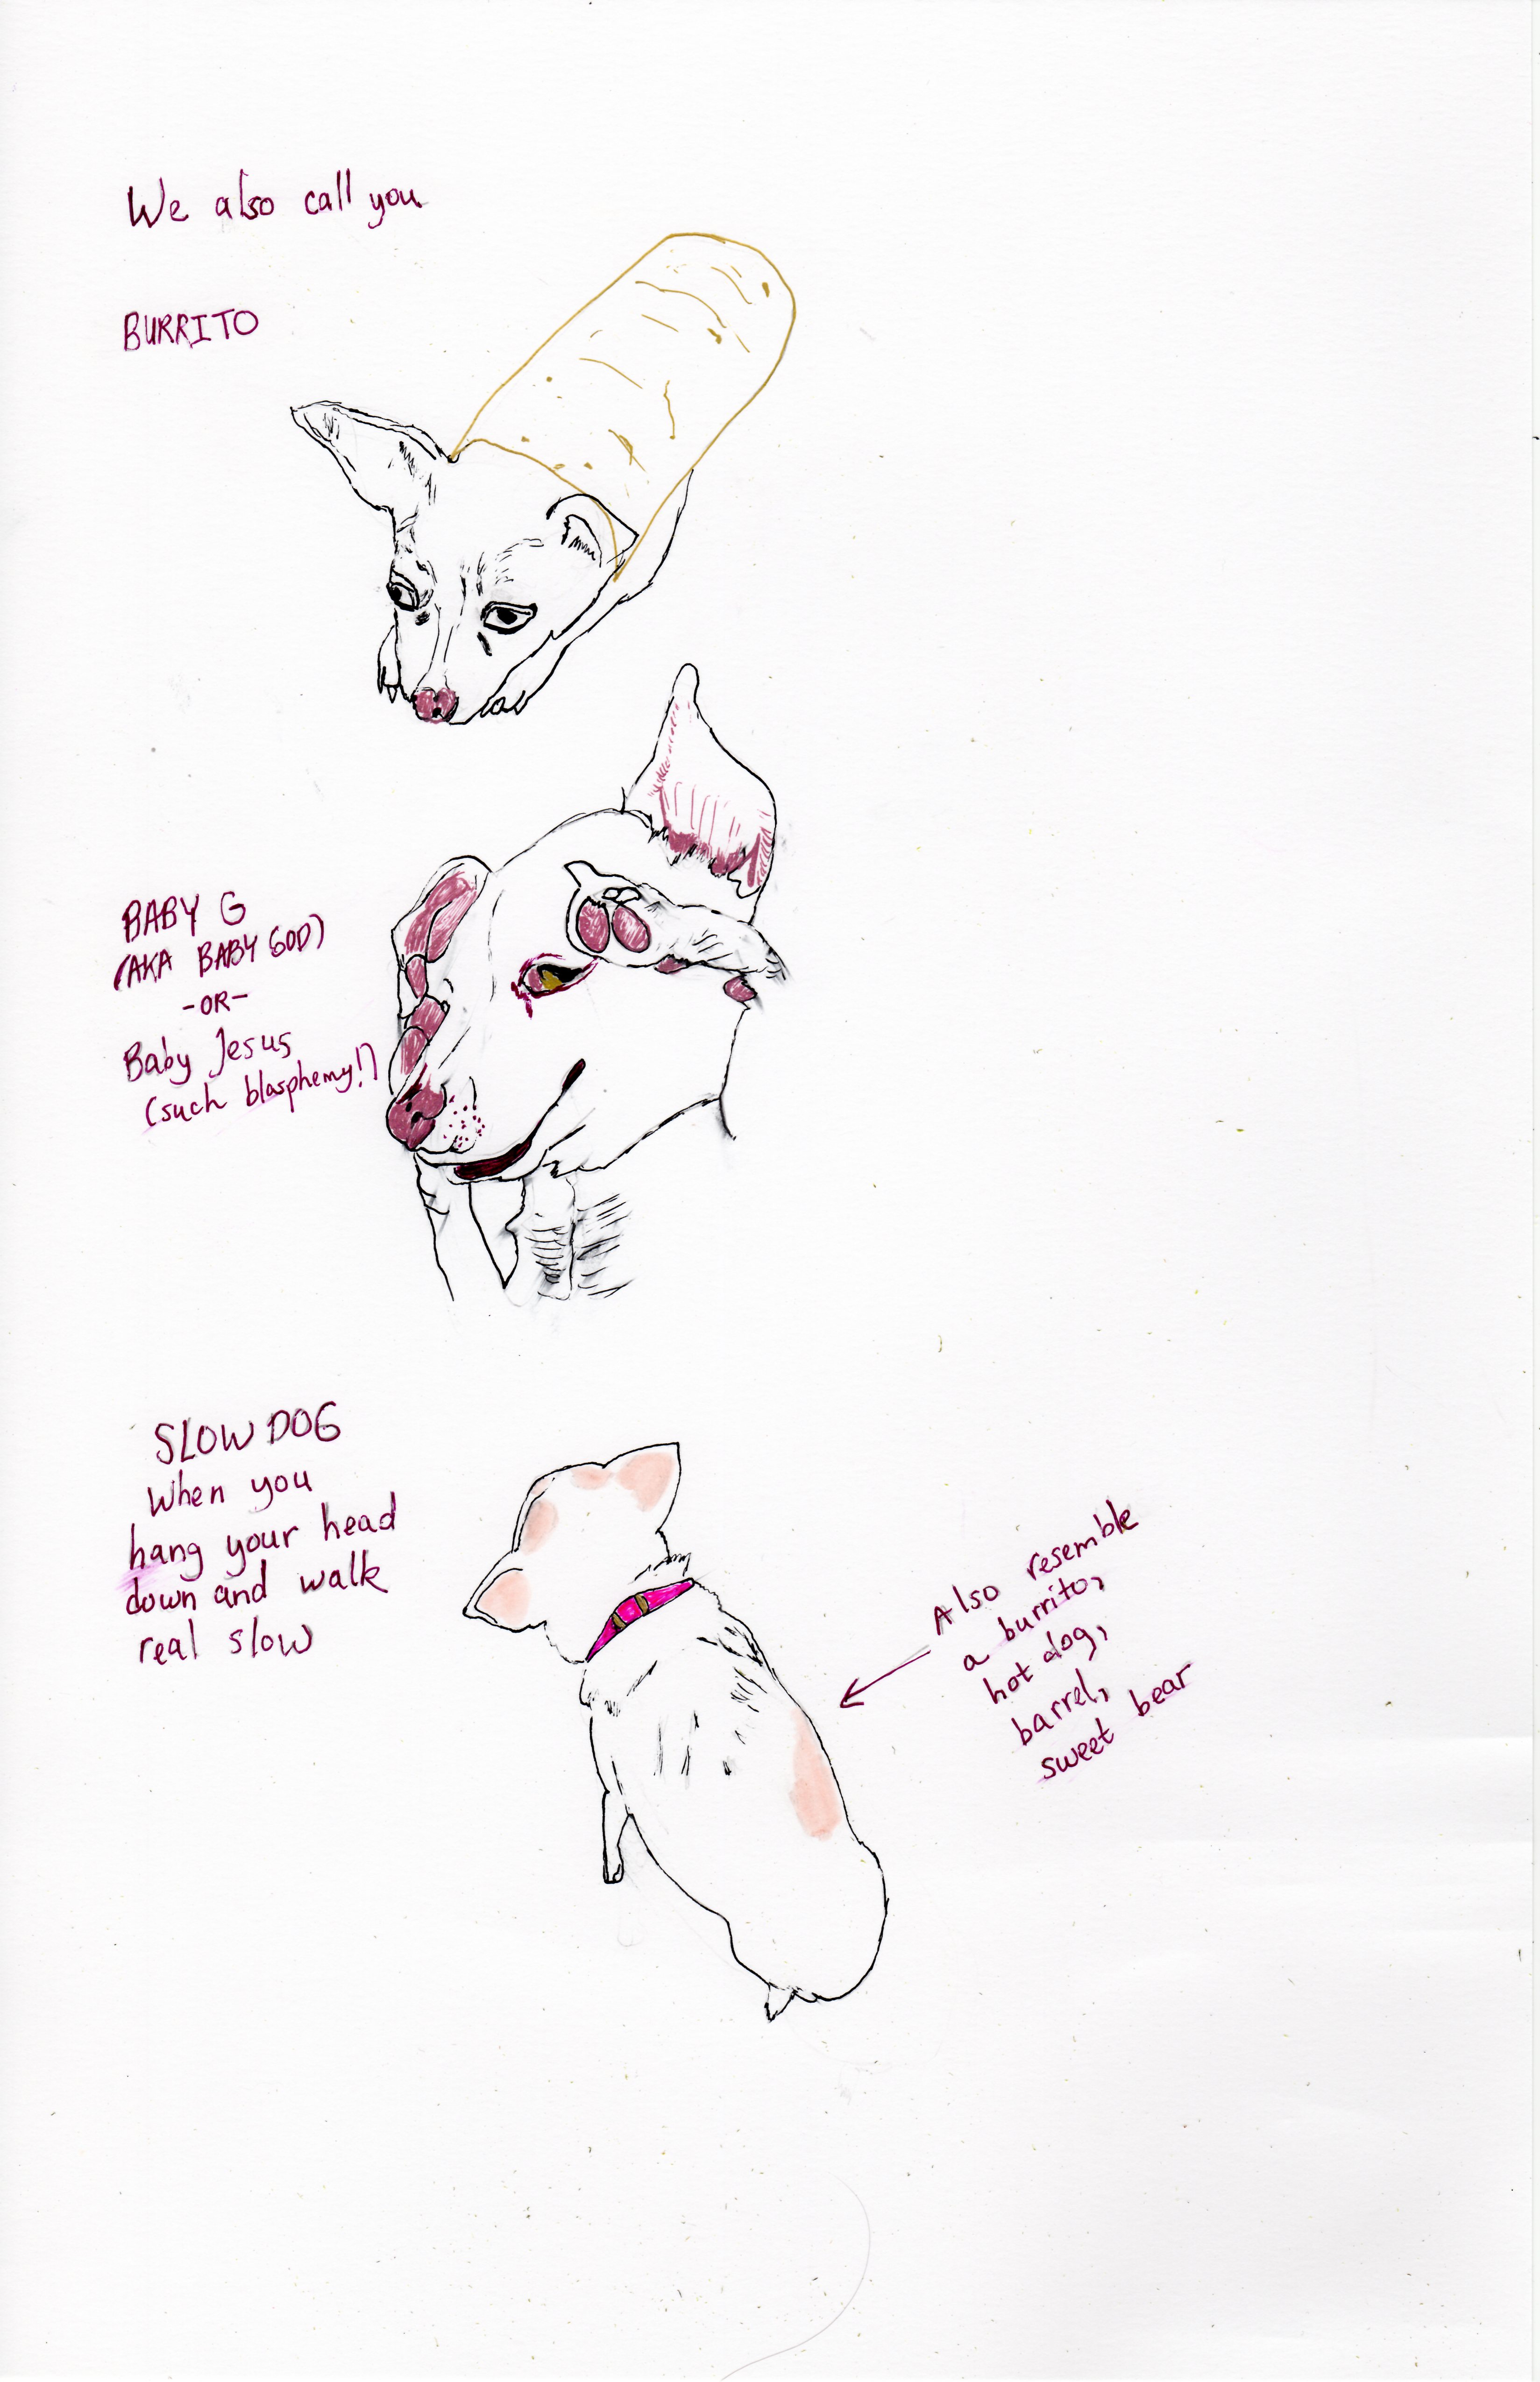 We also call you
BURRITO
BABY G
(AKA BABY GOD)
-OR-
Baby Jesus
(such blasphemy!)
SLOW DOG
When you
hang your head
down and walk
real slow
Also resemble
a burrito,
hot dog,
barrel,
sweet bear